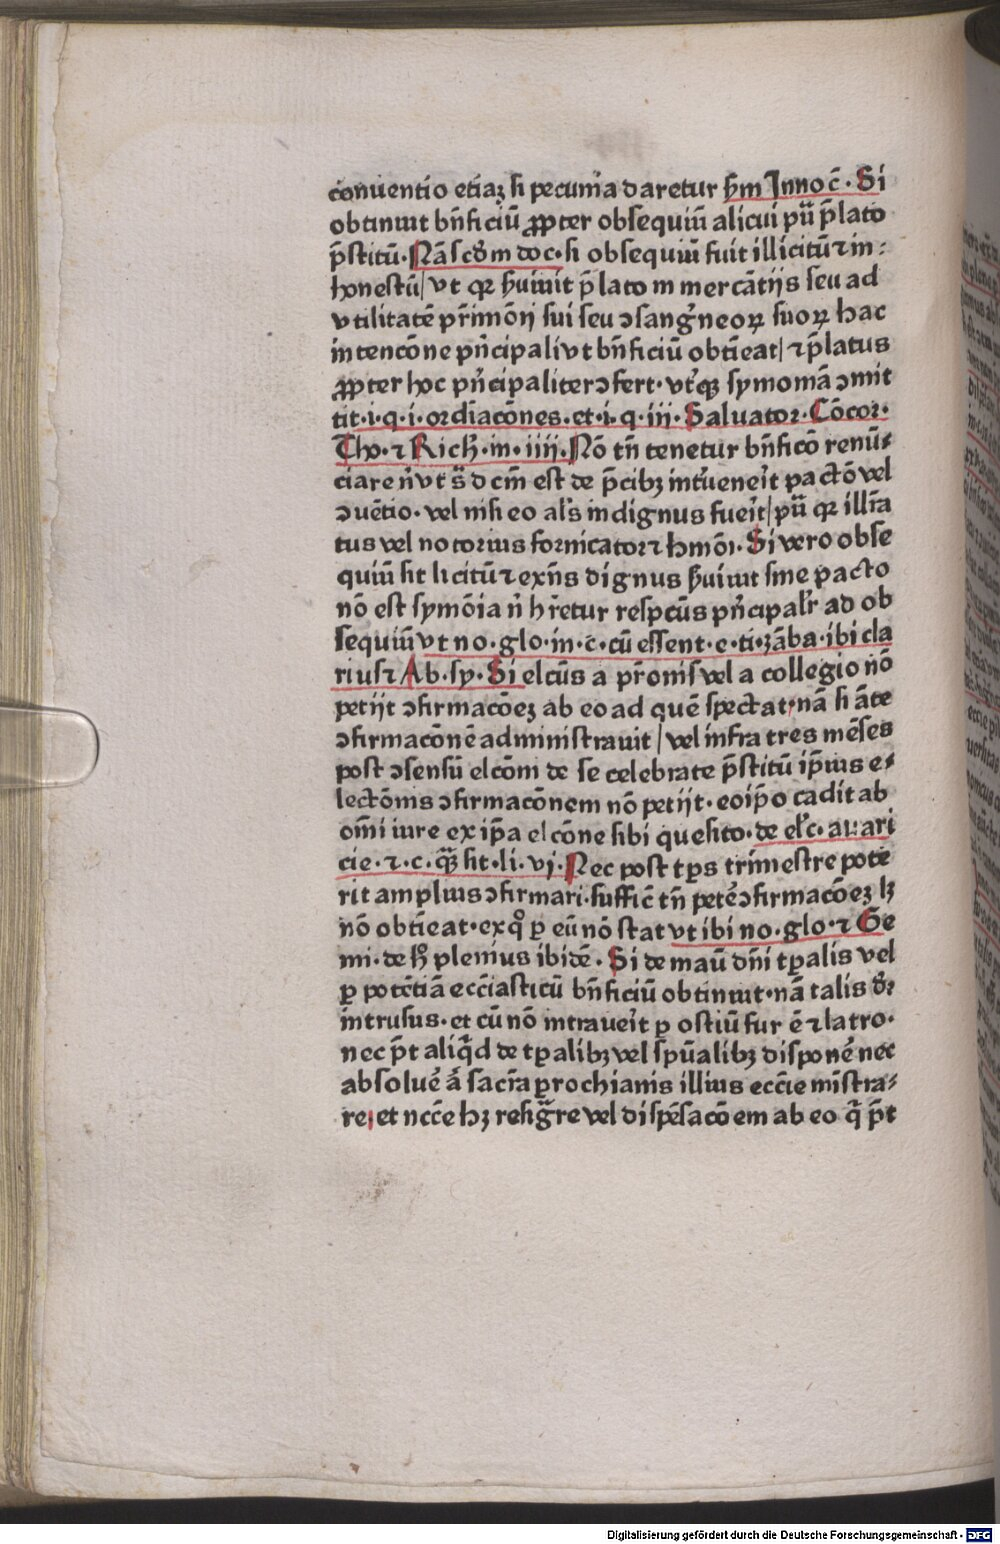 conuentio etiaꝫ si pecunia daretur ẜm Innoc̄. Si
obtinuit bn̄ficiū ꝓpter obsequiū alicui pū p̄lato
p̄stitū. Nā scd̄m doc. si obsequiū fuit illicitū ⁊ in-
honestū/ vt qꝛ ẜuiuit p̄lato in mercātijs seu ad
vtilitatē pr̄imōij sui seu ↄsangⁱneoꝝ suoꝝ hac
intencōne pⁱncipali vt bn̄ficiū obtīeat/ ⁊ p̄latus
ꝓpter hoc pⁱncipaliter ↄfert. vtⁱqꝫ symoniā ↄmit
tit. i. q. i. ordīacōnes. et. i. q. iii. Saluator. Cōcor.
Tho. ⁊ Rich. in. iiii. Nō tn̄ tenetur bn̄ficō renū-
ciare nⁱ vt sᵃ dcm̄ est de p̄cibꝫ int̓ueneⁱt pactō vel
ↄuētio. vel nisi eo al̓s indignus fueⁱt/ pū qꝛ illīa
tus vel notorius fornicator ⁊ hmōi. Si vero obse
quiū sit licitū ⁊ exn̄s dignus ẜuiuit sine pacto
nō est symōia nⁱ hr̄etur respcūs pⁱncipal̓r ad ob
sequiū vt no. glo. in. c. cū essent. e. ti. zāba. ibi cla
rius ⁊ Ab. sy. Si elcūs a pr̄onis vel a collegio nō
petijt ↄfirmacōeꝫ ab eo ad quē spectat. nā si āte
ↄfirmacōnē administrauit/ vel infra tres mēses
post ↄsensū elcōni de se celebrate p̄stitū ip̄ius e-
lectōnis ↄfirmacōnem nō petijt. eoip̄o cadit ab
om̄i iure ex ip̄a elcōne sibi quesito. de el̓c. auari
cie. ⁊. c. qᵃꝫ sit. li. vj. Nec post tp̄s trimestre pote
rit amplius ↄfirmari. suffic̄ tn̄ petē ↄfirmacōeꝫ lꝫ
nō obtīeat. ex qᵒ ꝑ eū nō stat vt ibi no. glo. ⁊ Ge
mi. de hᵒ plenius ibidē. Si de manū dn̄i tꝑalis vel
ꝑ potētiā ecc̄iasticū bn̄ficiū obtinuit. nā talis dr̄
intrusus. et cū nō intraueⁱt ꝑ ostiū fur ē ⁊ latro.
nec pt̄ aliqⁱd de tꝑalibꝫ vel spūalibꝫ disponē nec
absoluē ā sacrᵃ ꝑrochianis illius ecc̄ie mīstra-
re. et ncc̄e hꝫ resigᵃre vel dispēsacōem ab eo qⁱ pt̄
Digitalisierung gefördert durch die Deutsche Forschungsgemeinschaft - DFG